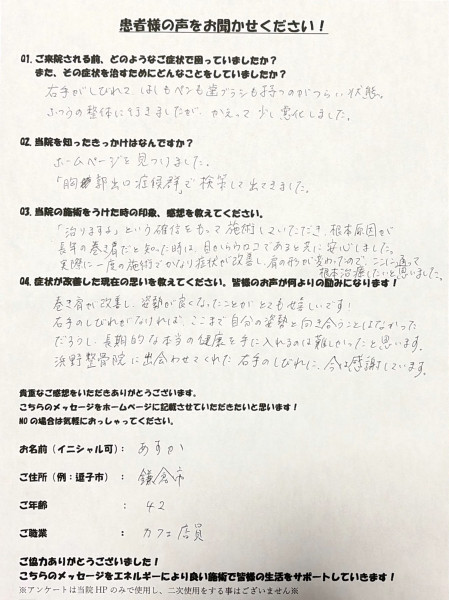 患者様の声をお聞かせください！
Q1. ご来院される前、どのようなご症状で困っていましたか？
また、その症状を治すためにどんなことをしていましたか？
右手がしびれて、はしもペンも歯ブラシも持つのがつらい状態。
ふつうの整体に行きましたが、かえって少し悪化しました。
Q2. 当院を知ったきっかけはなんですか？
ホームページを見つけました。
「胸郭出口症候群」で検索して出てきました。
Q3. 当院の施術をうけた時の印象、感想を教えてください。
「治りますよ」という確信をもって施術していただき、根本原因が
長年の巻き肩だと知った時は、目からウロコであると共に安心しました。
実際に一度の施術でかなり症状が改善し、肩の形が変わったので、ここに通って
根本治療したいと思いました。
Q4. 症状が改善した現在の思いを教えてください。皆様のお声が何よりの励みになります！
巻き肩が改善し、姿勢が良くなったことがとても嬉しいです！
右手のしびれがなければ、ここまで自分の姿勢と向き合うことはなかった
だろうし、長期的な本当の健康を手に入れるのは難しかったと思います。
浜野整骨院に出会わせてくれた右手のしびれに、今は感謝しています。
貴重なご感想をいただきありがとうございます。
こちらのメッセージをホームページに記載させていただきたいと思います！
NOの場合は気軽におっしゃってください。
お名前（イニシャル可）： あすか
ご住所（例：逗子市）： 鎌倉市
ご年齢 ： 42
ご職業 ： カフェ店員
ご協力ありがとうございました！
こちらのメッセージをエネルギーにより良い施術で皆様の生活をサポートしていきます！
※アンケートは当院HPのみで使用し、二次使用をする事はございません※